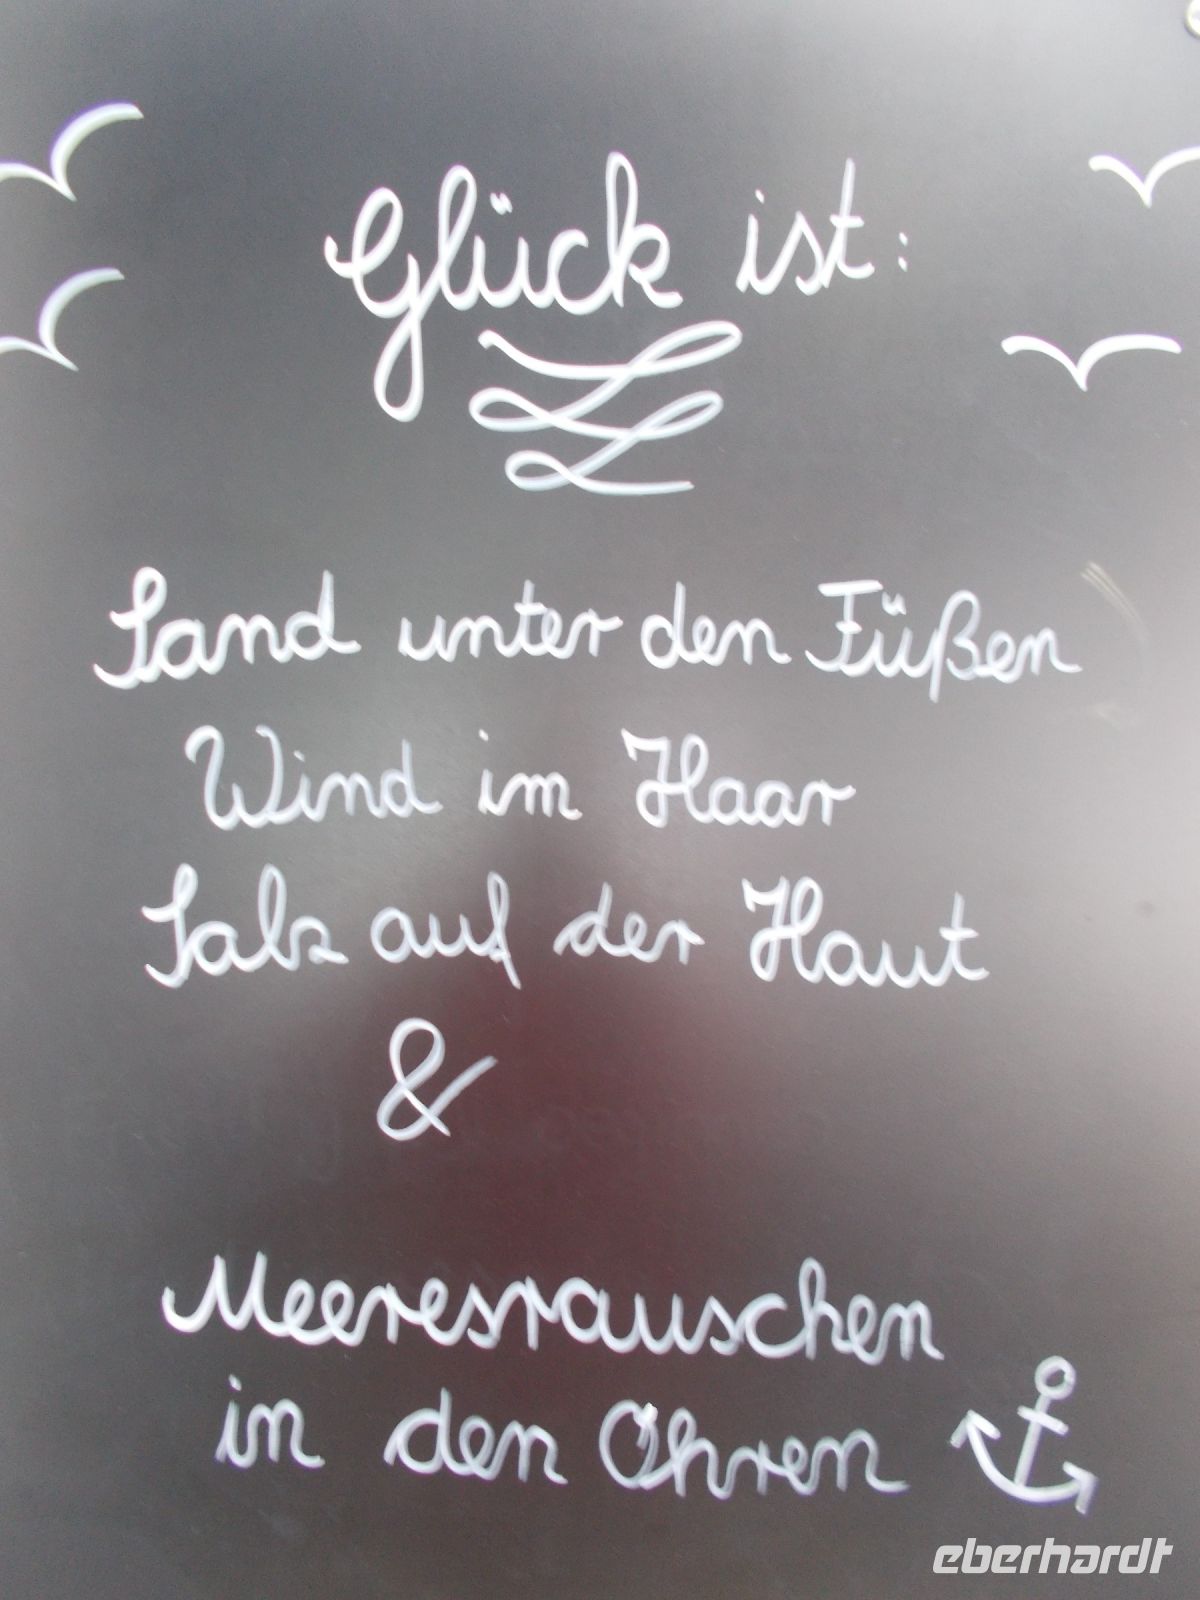 Glück ist:
Sand unter den Füßen
Wind im Haar
Salz auf der Haut
&
Meeresrauschen
in den Ohren
eberhardt